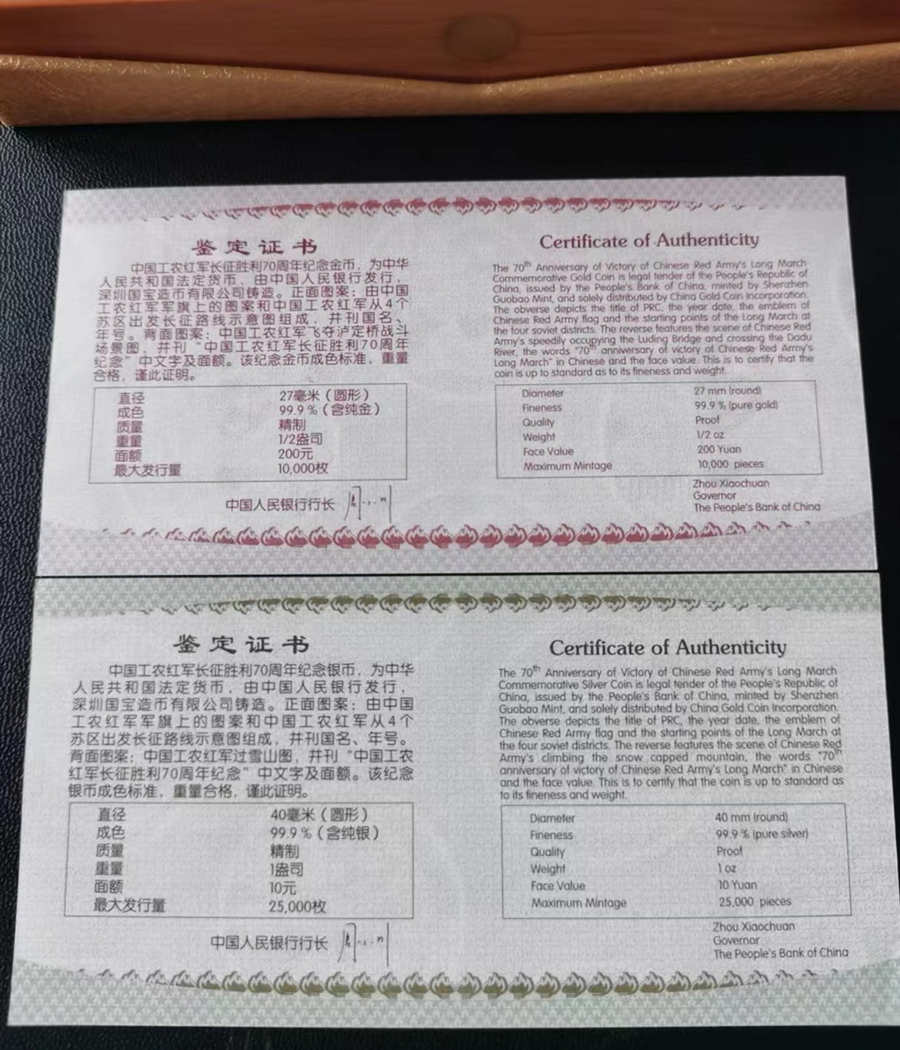 鉴定证书
中国工农红军长征胜利70周年纪念金币，为中华
人民共和国法定货币，由中国人民银行发行，
深圳国宝造币有限公司铸造。正面图案：由中国
工农红军军旗上的图案和中国工农红军从4个
苏区出发长征路线示意图组成，并刊国名、
年号。背面图案：中国工农红军飞夺泸定桥战斗
场景图，并刊“中国工农红军长征胜利70周年
纪念”中文字及面额。该纪念金币成色标准，重量
合格，谨此证明。
直径 27毫米（圆形）
成色 99.9％（含纯金）
质量 精制
重量 1/2盎司
面额 200元
最大发行量 10,000枚
中国人民银行行长
Certificate of Authenticity
The 70th Anniversary of Victory of Chinese Red Army's Long March
Commemorative Gold Coin is legal tender of the People's Republic of
China, issued by the People's Bank of China, minted by Shenzhen
Guobao Mint, and solely distributed by China Gold Coin Incorporation.
The obverse depicts the title of PRC, the year date, the emblem of
Chinese Red Army flag and the starting points of the Long March at
the four soviet districts. The reverse features the scene of Chinese Red
Army's speedily occupying the Luding Bridge and crossing the Dadu
River, the words "70th anniversary of victory of Chinese Red Army's
Long March" in Chinese and the face value. This is to certify that the
coin is up to standard as to its fineness and weight.
Diameter 27 mm (round)
Fineness 99.9 % (pure gold)
Quality Proof
Weight 1/2 oz
Face Value 200 Yuan
Maximum Mintage 10,000 pieces
Zhou Xiaochuan
Governor
The People's Bank of China
鉴定证书
中国工农红军长征胜利70周年纪念银币，为中华
人民共和国法定货币，由中国人民银行发行，
深圳国宝造币有限公司铸造。正面图案：由中国
工农红军军旗上的图案和中国工农红军从4个
苏区出发长征路线示意图组成，并刊国名、年号。
背面图案：中国工农红军过雪山图，并刊“中国工农
红军长征胜利70周年纪念”中文字及面额。该纪念
银币成色标准，重量合格，谨此证明。
直径 40毫米（圆形）
成色 99.9％（含纯银）
质量 精制
重量 1盎司
面额 10元
最大发行量 25,000枚
中国人民银行行长
Certificate of Authenticity
The 70th Anniversary of Victory of Chinese Red Army's Long March
Commemorative Silver Coin is legal tender of the People's Republic of
China, issued by the People's Bank of China, minted by Shenzhen
Guobao Mint, and solely distributed by China Gold Coin Incorporation.
The obverse depicts the title of PRC, the year date, the emblem of
Chinese Red Army flag and the starting points of the Long March at
the four soviet districts. The reverse features the scene of Chinese Red
Army's climbing the snow capped mountain, the words "70th
anniversary of victory of Chinese Red Army's Long March" in Chinese
and the face value. This is to certify that the coin is up to standard as
to its fineness and weight.
Diameter 40 mm (round)
Fineness 99.9 % (pure silver)
Quality Proof
Weight 1 oz
Face Value 10 Yuan
Maximum Mintage 25,000 pieces
Zhou Xiaochuan
Governor
The People's Bank of China